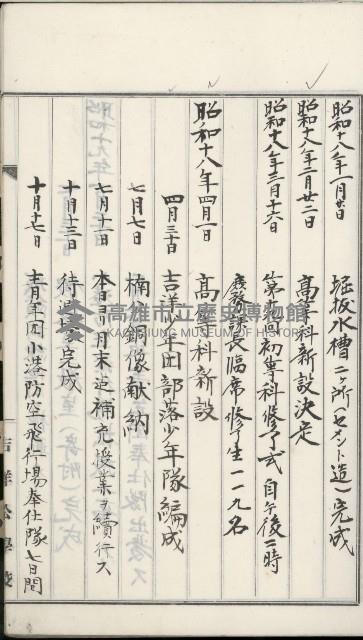 昭和十八年一月廿日 堀抜水槽二ヶ所(セメント造)完成
昭和十八年二月廿二日 高等科新設決定
昭和十八年三月十六日 第 回初等科修了式 自午後二時
 課長臨席修了生一一九名
昭和十八年四月一日 高等科新設
四月三十日 吉祥 年団部落少年隊編成
七月七日 楠 銅像献納
七月十一日 本日ヨリ月末迄補充授業ヲ續行ス
十月十三日 待避 完成
十月十七日 青年団小港防空飛行場奉仕隊七日間
高雄市立歷史博物館
KAOHSIUNG MUSEUM OF HISTORY